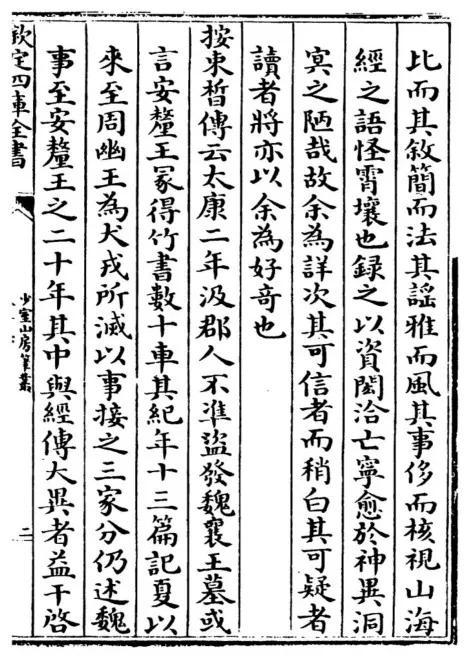 比而其敘簡而法其謡雅而風其事侈而核視山海
經之語怪霄壤也録之以資閎洽亡寧愈於神異洞
㝠之陋哉故余為詳次其可信者而稍白其可疑者
讀者將亦以余為好奇也
按束晳傳云太康二年汲郡人不凖盜發魏襄王墓或
言安釐王冢得竹書數十車其紀年十三篇記夏以
來至周幽王為犬戎所滅以事接之三家分仍述魏
事至安釐王之二十年其中與經傳大異者益干啓
欽定四庫全書
少室山房筆叢
二